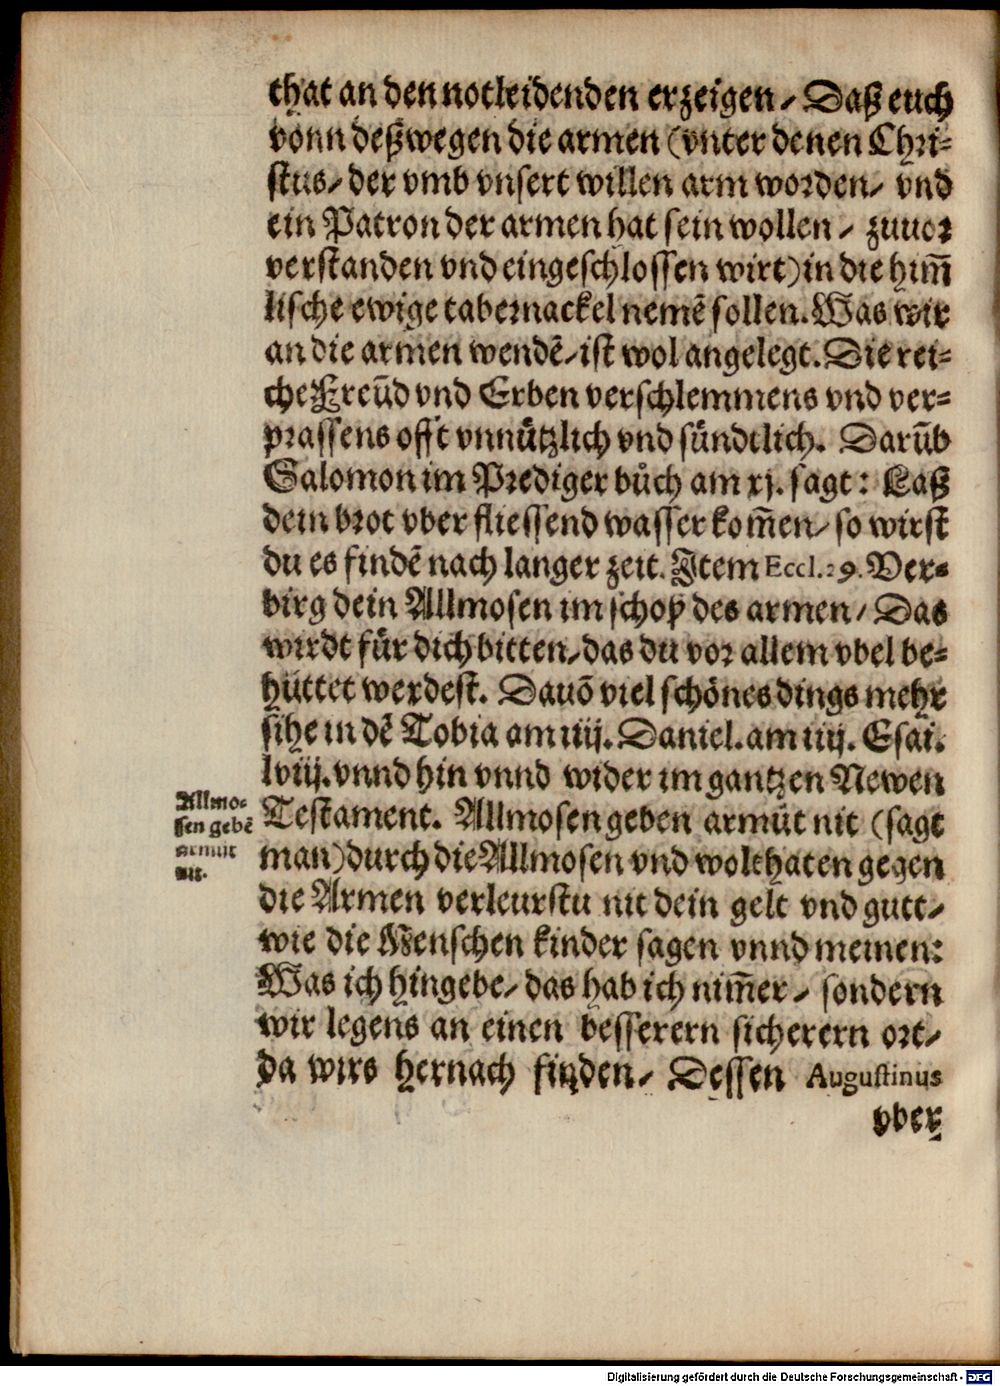 that an den notleidenden erzeigen / Daß euch
vonn deßwegen die armen (vnter denen Chri=
stus / der vmb vnsert willen arm worden / vnd
ein Patron der armen hat sein wollen / zuuor
verstanden vnd eingeschlossen wirt) in die him̃
lische ewige tabernackel nemẽ sollen. Was wir
an die armen wendẽ / ist wol angelegt. Die rei=
che Freũd vnd Erben verschlemmens vnd ver=
prassens offt vnnützlich vnd sündtlich. Darũb
Salomon im Prediger bůch am xj. sagt: Laß
dein brot vber fliessend wasser kom̃en / so wirst
du es findẽ nach langer zeit. Item Eccl. 29. Ver=
birg dein Allmosen im schoß des armen / Das
wirdt für dich bitten / das du vor allem vbel be=
hüttet werdest. Dauõ viel schönes dings mehr
sihe in dẽ Tobia am iiij. Daniel. am iiij. Esai.
lviij. vnnd hin vnnd wider im gantzen Newen
Testament. Allmosen geben armüt nit (sagt
man) durch die Allmosen vnd wolthaten gegen
die Armen verleurstu nit dein gelt vnd gutt /
wie die Menschen kinder sagen vnnd meinen:
Was ich hingebe / das hab ich nim̃er / sondern
wir legens an einen besserern sicherern ort /
da wirs hernach finden / Dessen Augustinus
vber
Allmo=
sen gebẽ
armüt
nit.
Digitalisierung gefördert durch die Deutsche Forschungsgemeinschaft - DFG